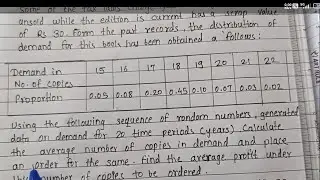 unsold while the edition is current has a scrap value
of Rs 30. Form the past records, the distribution of
demand for this book has been obtained a follows:
Demand in 15 16 17 18 19 20 21 22
No. of copies
Proportion 0.05 0.08 0.20 0.45 0.10 0.07 0.03 0.02
Using the following sequence of random numbers, generated
data on demand for 20 time periods (years). Calculate
the average number of copies in demand and place
an order for the same. find the average profit under
number of copies to be ordered.